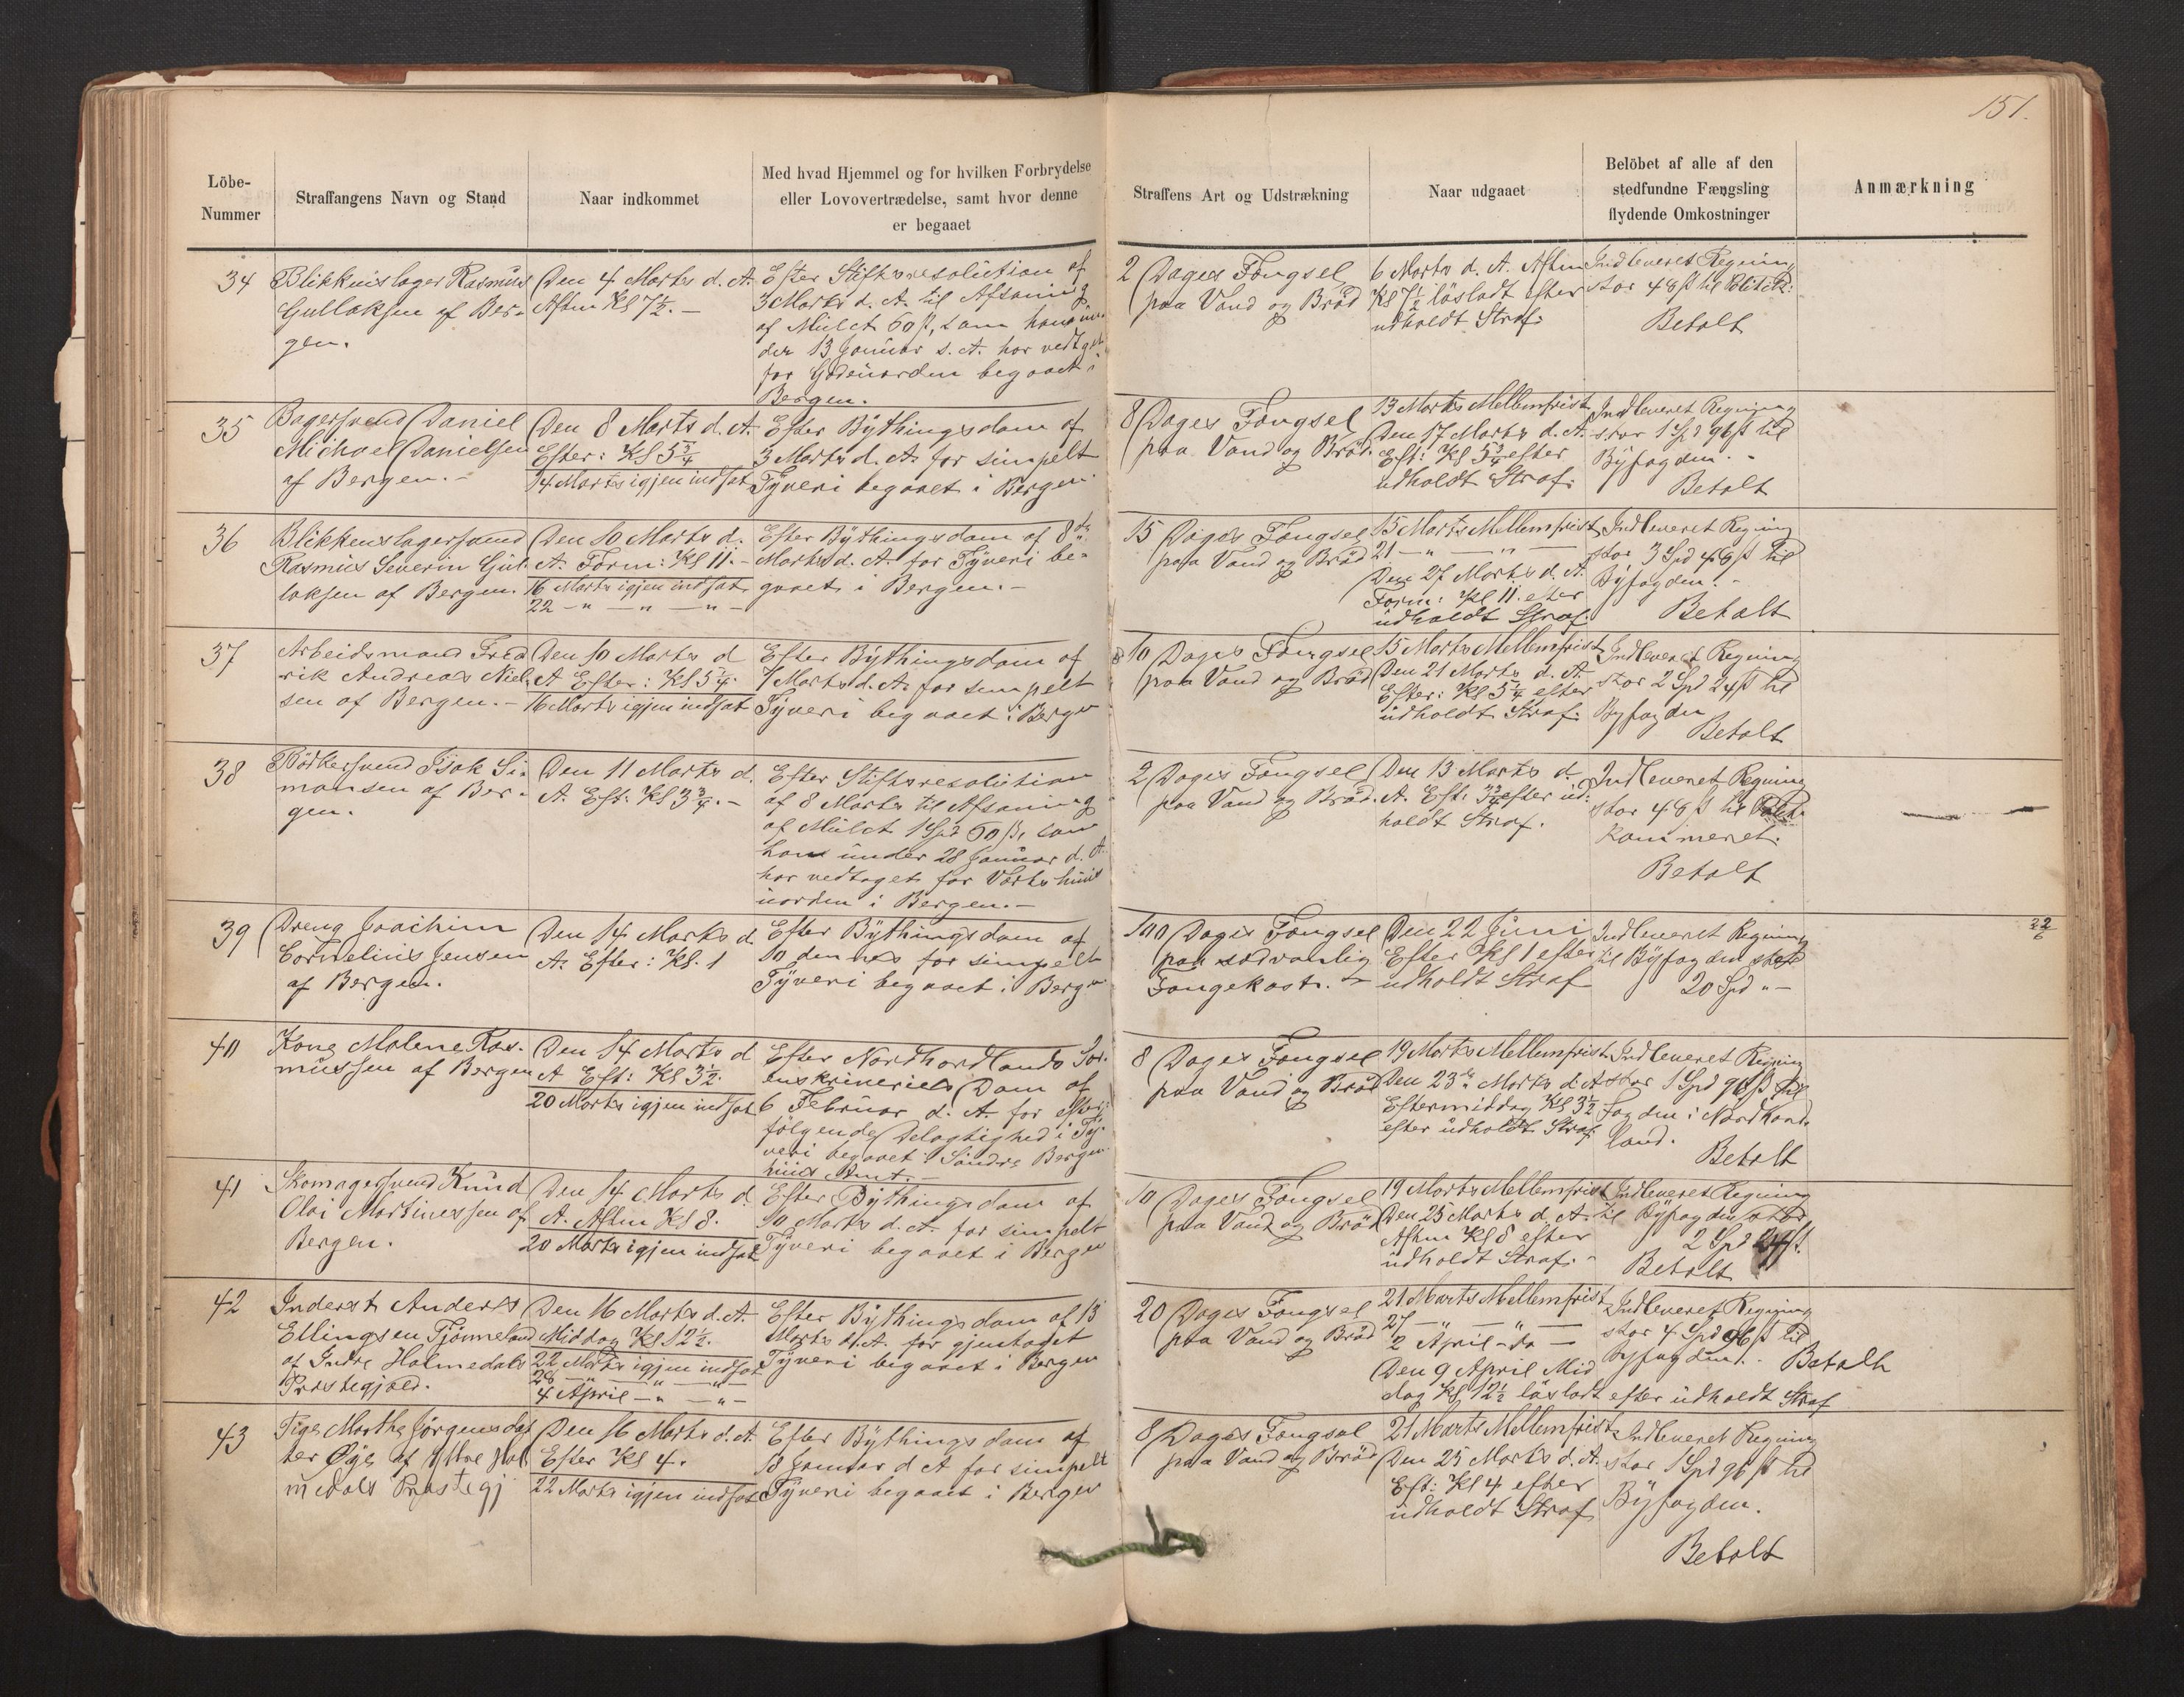 151.
Löbe-
Nummer
Straffangens Navn og Stand
Naar indkommet
Med hvad Hjemmel og for hvilken Forbrydelse
eller Lovovertrædelse, samt hvor denne
er begaaet
Straffens Art og Udstrækning
Naar udgaaet
Belöbet af alle af den
stedfundne Fængsling
flydende Omkostninger
Anmærkning
34
Blikkenslager Rasmus
Gullaksen af Ber-
gen.
Den 4 Marts d. A.
Aften Kl 7½. –
Efter Stiftsresolution af
3 Marts d. A. til Afsoning
af Mulct 60 ß, som han un-
der 13 Januar s. A. har vedtaget
for Gadeuorden begaaet i
Bergen.
2 Dages Fængsel
paa Vand og Bröd
6 Marts d. A. Aften
Kl 7½ lösladt efter
udholdt Straf.
Indleveret Regning
stor 48 ß til
Betalt
35
Bagersvend Daniel
Michael Danielsen
af Bergen. –
Den 8 Marts d. A.
Efter: Kl 5¾
14 Marts igjen indsat
Efter Bythingsdom af
3 Marts d. A. for simpelt
Tyveri begaaet i Bergen.
8 Dages Fængsel
paa Vand og Bröd.
13 Marts Mellemfrist
Den 17 Marts d. A.
Eft: Kl 5¾ efter
udholdt Straf.
Indleveret Regning
stor 1 Spd 96 ß til
Byfogden. –
Betalt
36
Blikkenslagersvend
Rasmus Severin Gul-
laksen af Bergen.
Den 10 Marts d.
A. Form: Kl 11. –
16 Marts igjen indsat
22 – " – " – " –
Efter Bythingsdom af 8de
Marts d. A. for Tyveri be-
gaaet i Bergen. –
15 Dages Fængsel
paa Vand og Bröd
15 Marts Mellemfrist
21 – " – " –
Den 27 Marts d. A.
Form: Kl 11. efter
udholdt Straf.
Indleveret Regning
stor 3 Spd 48 ß til
Byfogden. –
Betalt
37
Arbeidsmand Fred
rik Andreas Niel-
sen af Bergen. –
Den 10 Marts d
A Efter: Kl 5¼.
16 Marts igjen indsat
Efter Bythingsdom af
7 Marts d. A. for simpelt
Tyveri begaaet i Bergen
10 Dages Fængsel
paa Vand og Bröd
15 Marts Mellemfrist
Den 21 Marts d. A.
Efter: Kl 5¼ efter
udholdt Straf.
Indleveret Regning
stor 2 Spd 24 ß til
Byfogden
Betalt
38
Bödkersvend Isak Si-
monsen af Ber-
gen.
Den 11 Marts d.
A. Eft: Kl 3¾. –
Efter Stiftsresolution
af 8 Marts til Afsoning
af Mulct 1 Spd 60 ß, som
han under 28 Januar d. A.
har vedtaget for Vertshus
uorden i Bergen. –
2 Dages Fængsel
paa Vand og Bröd.
Den 13 Marts d.
A. Eft: 3¾ efter ud-
holdt Straf.
Indleveret Regning
stor 48 ß til Politi
kammeret.
Betalt
39
Dreng Joachim
Cornelius Jensen
af Bergen.
Den 14 Marts d.
A. Efter: Kl. 1
Efter Bythingsdom af
10 dennes for simpelt
Tyveri begaaet i Bergen
100 Dages Fængsel
paa sædvanlig
Fangekost. –
Den 22 Juni
Efter Kl 1 efter
udholdt Straf
Indleveret Regning
til Byfogden stor
20 Spd " –
22/6
40
Kone Malene Ras-
mussen af Bergen
Den 14 Marts d
A Eft: Kl 3½.
20 Marts igjen indsat
Efter Nordhordlands Sor-
enskriveries Dom af
6 Februar d. A. for efter-
fölgende Delagtighed i Ty-
veri begaaet i Söndre Bergen
huus Amt. –
8 Dages Fængsel
paa Vand og Bröd
19 Marts Mellemfrist
Den 23de Marts d. A.
Eftermiddag Kl 3½
efter udholdt Straf
Indleveret Regning
stor 1 Spd 96 ß til
Fogden i Nordhord-
land.
Betalt
41
Skomagersvend Knud
Olai Martinessen af
Bergen.
Den 14 Marts d
A. Aften Kl 8.
20 Marts igjen indsat
Efter Bythingsdom af
10 Marts d. A. for simpelt
Tyveri begaaet i Bergen
10 Dages Fængsel
paa Vand og Bröd
19 Marts Mellemfrist
Den 25 Marts d. A.
Aften Kl 8 efter
udholdt Straf. –
Indleveret Regning
til Byfogden stor
2 Spd 24 ß.
Betalt
42
Inderst Anders
Ellingsen Tjönneland
af Indre Holmedals
Præstegjæld.
Den 16 Marts d. A.
Middag Kl 12½.
22 Marts igjen indsat
28 – " – " – " –
4 April – " – " –
Efter Bythingsdom af 13
Marts d. A. for gjentaget
Tyveri begaaet i Bergen
20 Dages Fængsel
paa Vand og Bröd
21 Marts Mellemfrist
27 – – –
2 April – do –
Den 9 April Mid
dag Kl 12½ lösladt efter udholdt Straf
Indleveret Regning
stor 4 Spd 96 ß til
Byfogden. – Betalt
43
Pige Marthe Jörgensdat
ter Øye af Ytre Hol
medals Præstegj
Den 16 Marts d. A.
Efter Kl 4.
22 Marts igjen indsat
Efter Bythingsdom af
18 Januar d A for simpelt
Tyveri begaaet i Bergen
8 Dages Fængsel
paa Vand og Bröd
21 Marts Mellemfrist
Den 25 Marts d. A.
Eft: Kl 4 efter
udholdt Straf
Indleveret Regning
stor 1 Spd 96 ß til
Byfogden.
Betalt